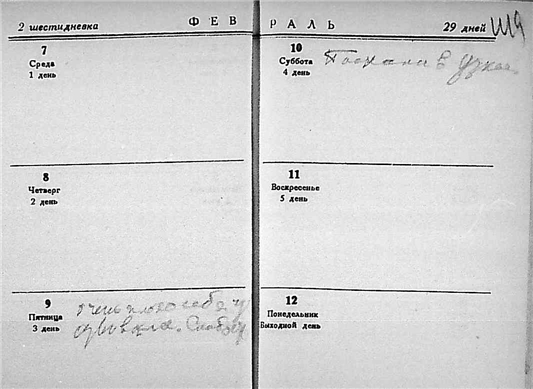 2 шестидневка
ФЕВ
7
Среда
1 день
8
Четверг
2 день
9
Пятница
3 день
очень плохо себя
Слаб
РАЛЬ
29 дней
10
Суббота
4 день
Поехали в Узкое.
11
Воскресенье
5 день
12
Понедельник
Выходной день